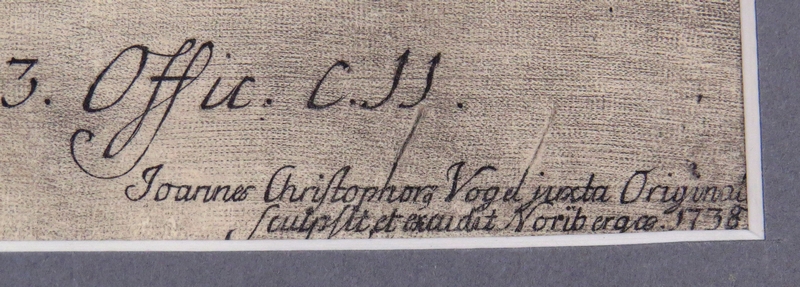 3. Offic. C. 11.
Joannes Christophorq Vogel juxta Original
sculpsit, et excudit Noribergæ. 1738